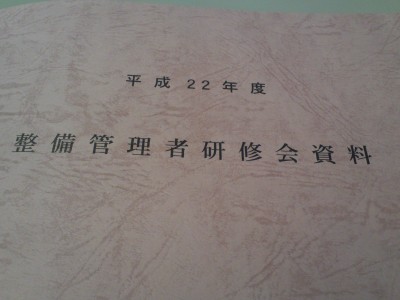 平成22年度
整備管理者研修会資料